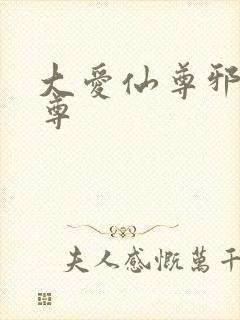 大愛仙尊邪
尊
夫人感慨萬千